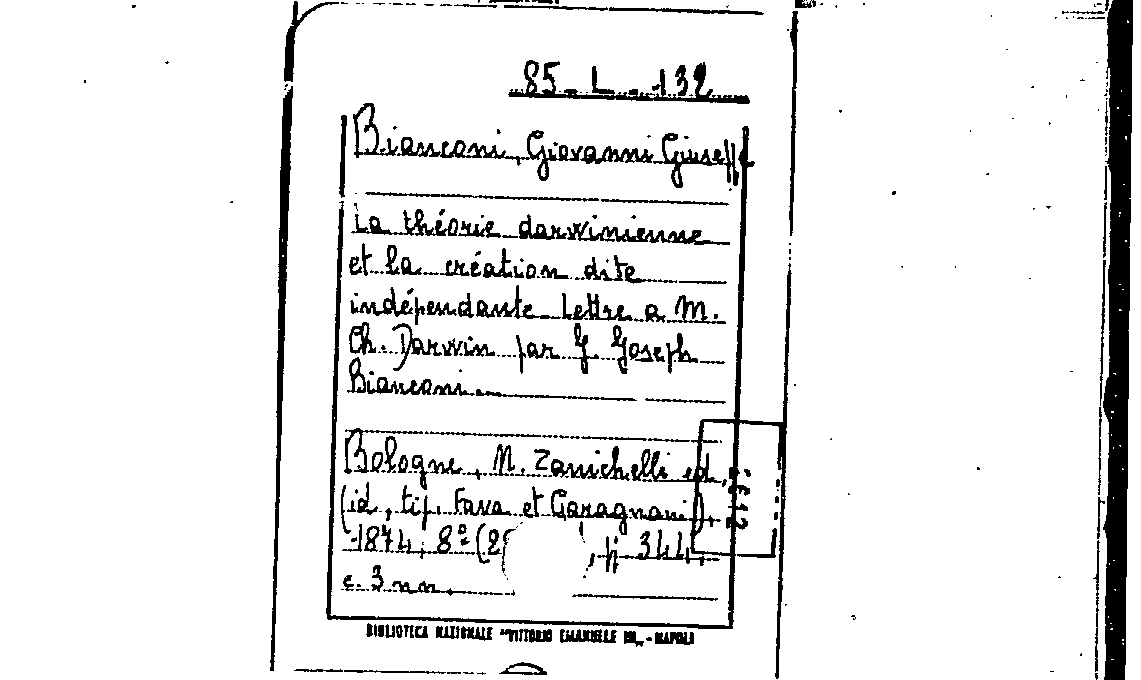 85-L-132
Bianconi, Giovanni Giuseppe
La théorie darwinienne
et la création dite
indépendante Lettre a M.
Ch. Darwin par G. Joseph
Bianconi.—
Bologne, N. Zanichelli ed.
(id, tip. Fava et Garagnani),
1874, 8º (2 , p. 344,
c. 3 nn.
BIBLIOTECA NAZIONALE "VITTORIO EMANUELE III„ - NAPOLI